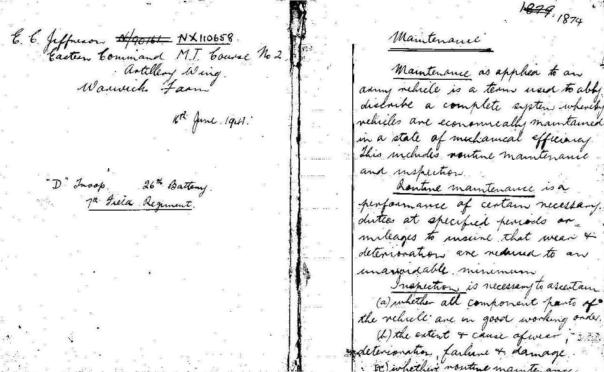 E. C. Jeffreson N/90161 NX110658
Eastern Command M.T. Course No 2
Artillery Wing
Warwick Farm
10th June 1941.
"D" Troop, 26th Battery
7th Field Regiment.
1879 1874
Maintenance
Maintenance as applied to an
army vehicle is a team used to ably
discribe a complete system whereby
vehicles are economically maintained
in a state of mechanical efficiency
This includes routine maintenance
and inspection.
Routine maintenance is a
performance of certain necessary
duties at specified periods or
mileages to insure that wear &
deterioration are reduced to an
unavoidable minimum
Inspection is necessary to ascertain
(a) whether all component parts of
the vehicle are in good working order.
(b) the extent & cause of wear,
deterioration, failure & damage.
(c) whether routine maintenance